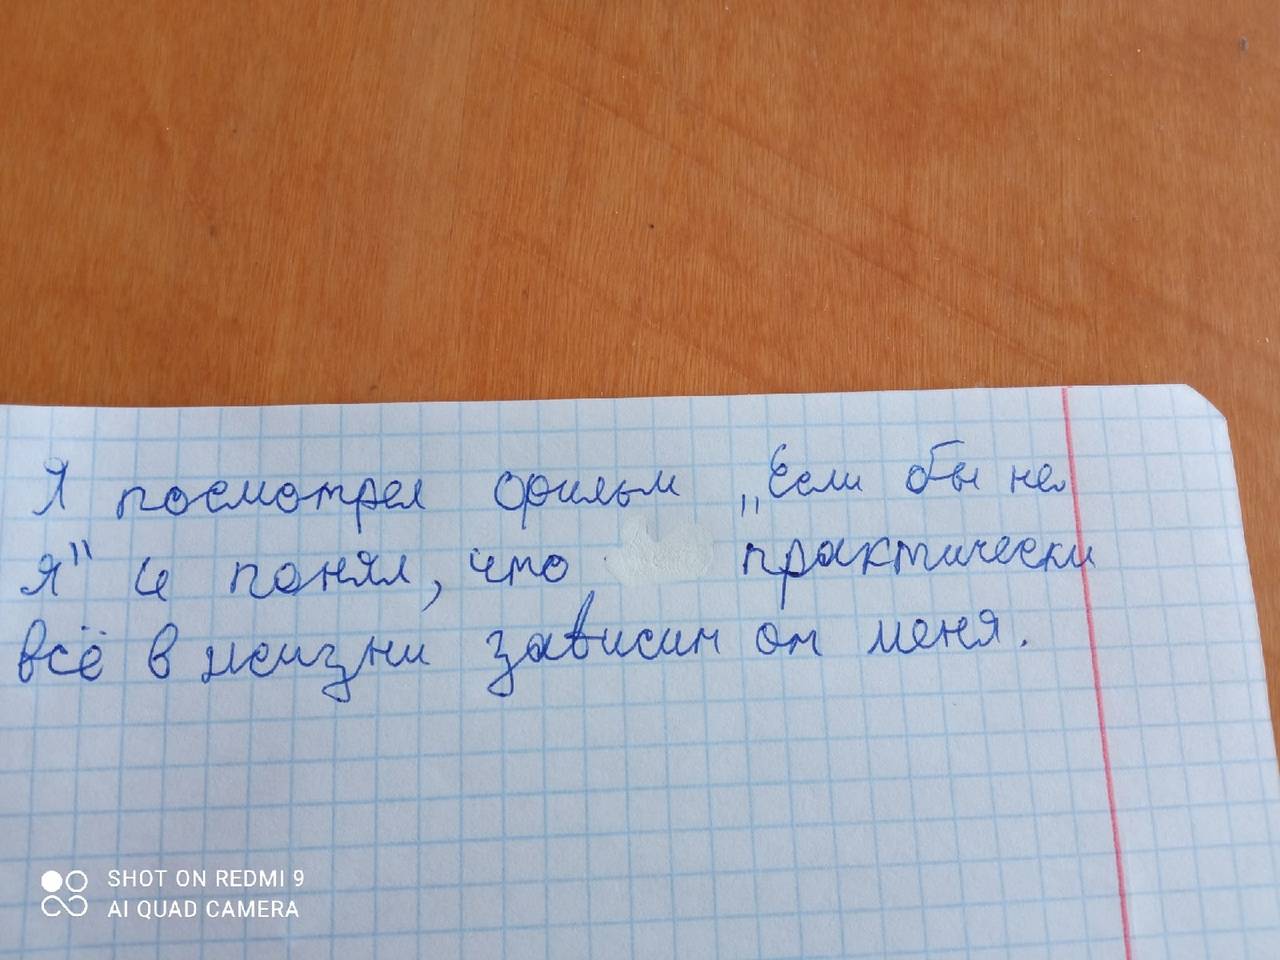 Я посмотрел фильм „Если бы не
я" и понял, что практически
всё в жизни зависит от меня.
SHOT ON REDMI 9
AI QUAD CAMERA